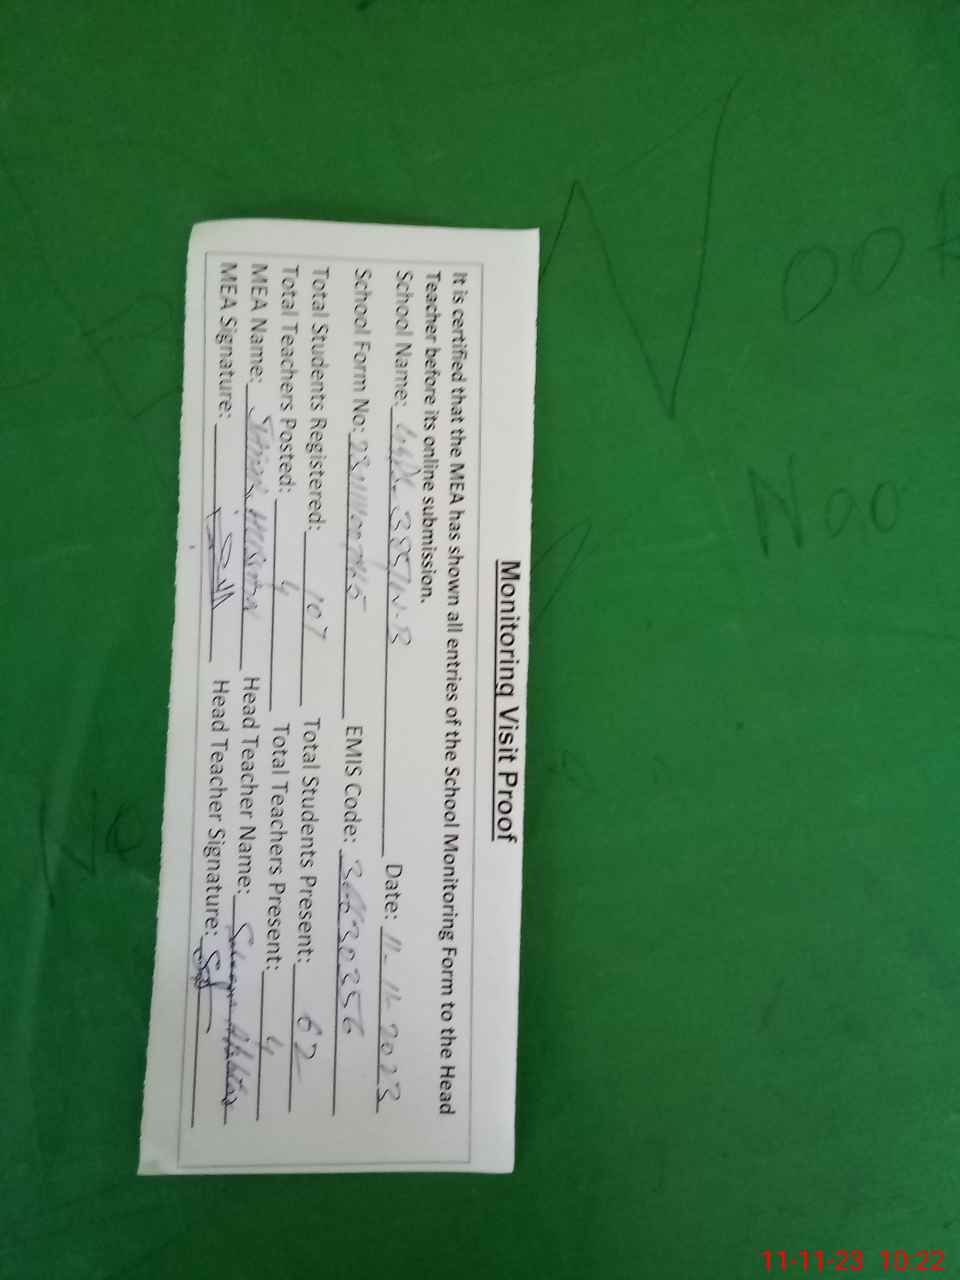 Monitoring Visit Proof
It is certified that the MEA has shown all entries of the School Monitoring Form to the Head
Teacher before its online submission.
School Name: Date: 11-11-2023
School Form No: EMIS Code:
Total Students Registered: 107 Total Students Present: 62
Total Teachers Posted: 4 Total Teachers Present: 4
MEA Name: Head Teacher Name:
MEA Signature: Head Teacher Signature:
Noo
Noo
No
11-11-23 10:22